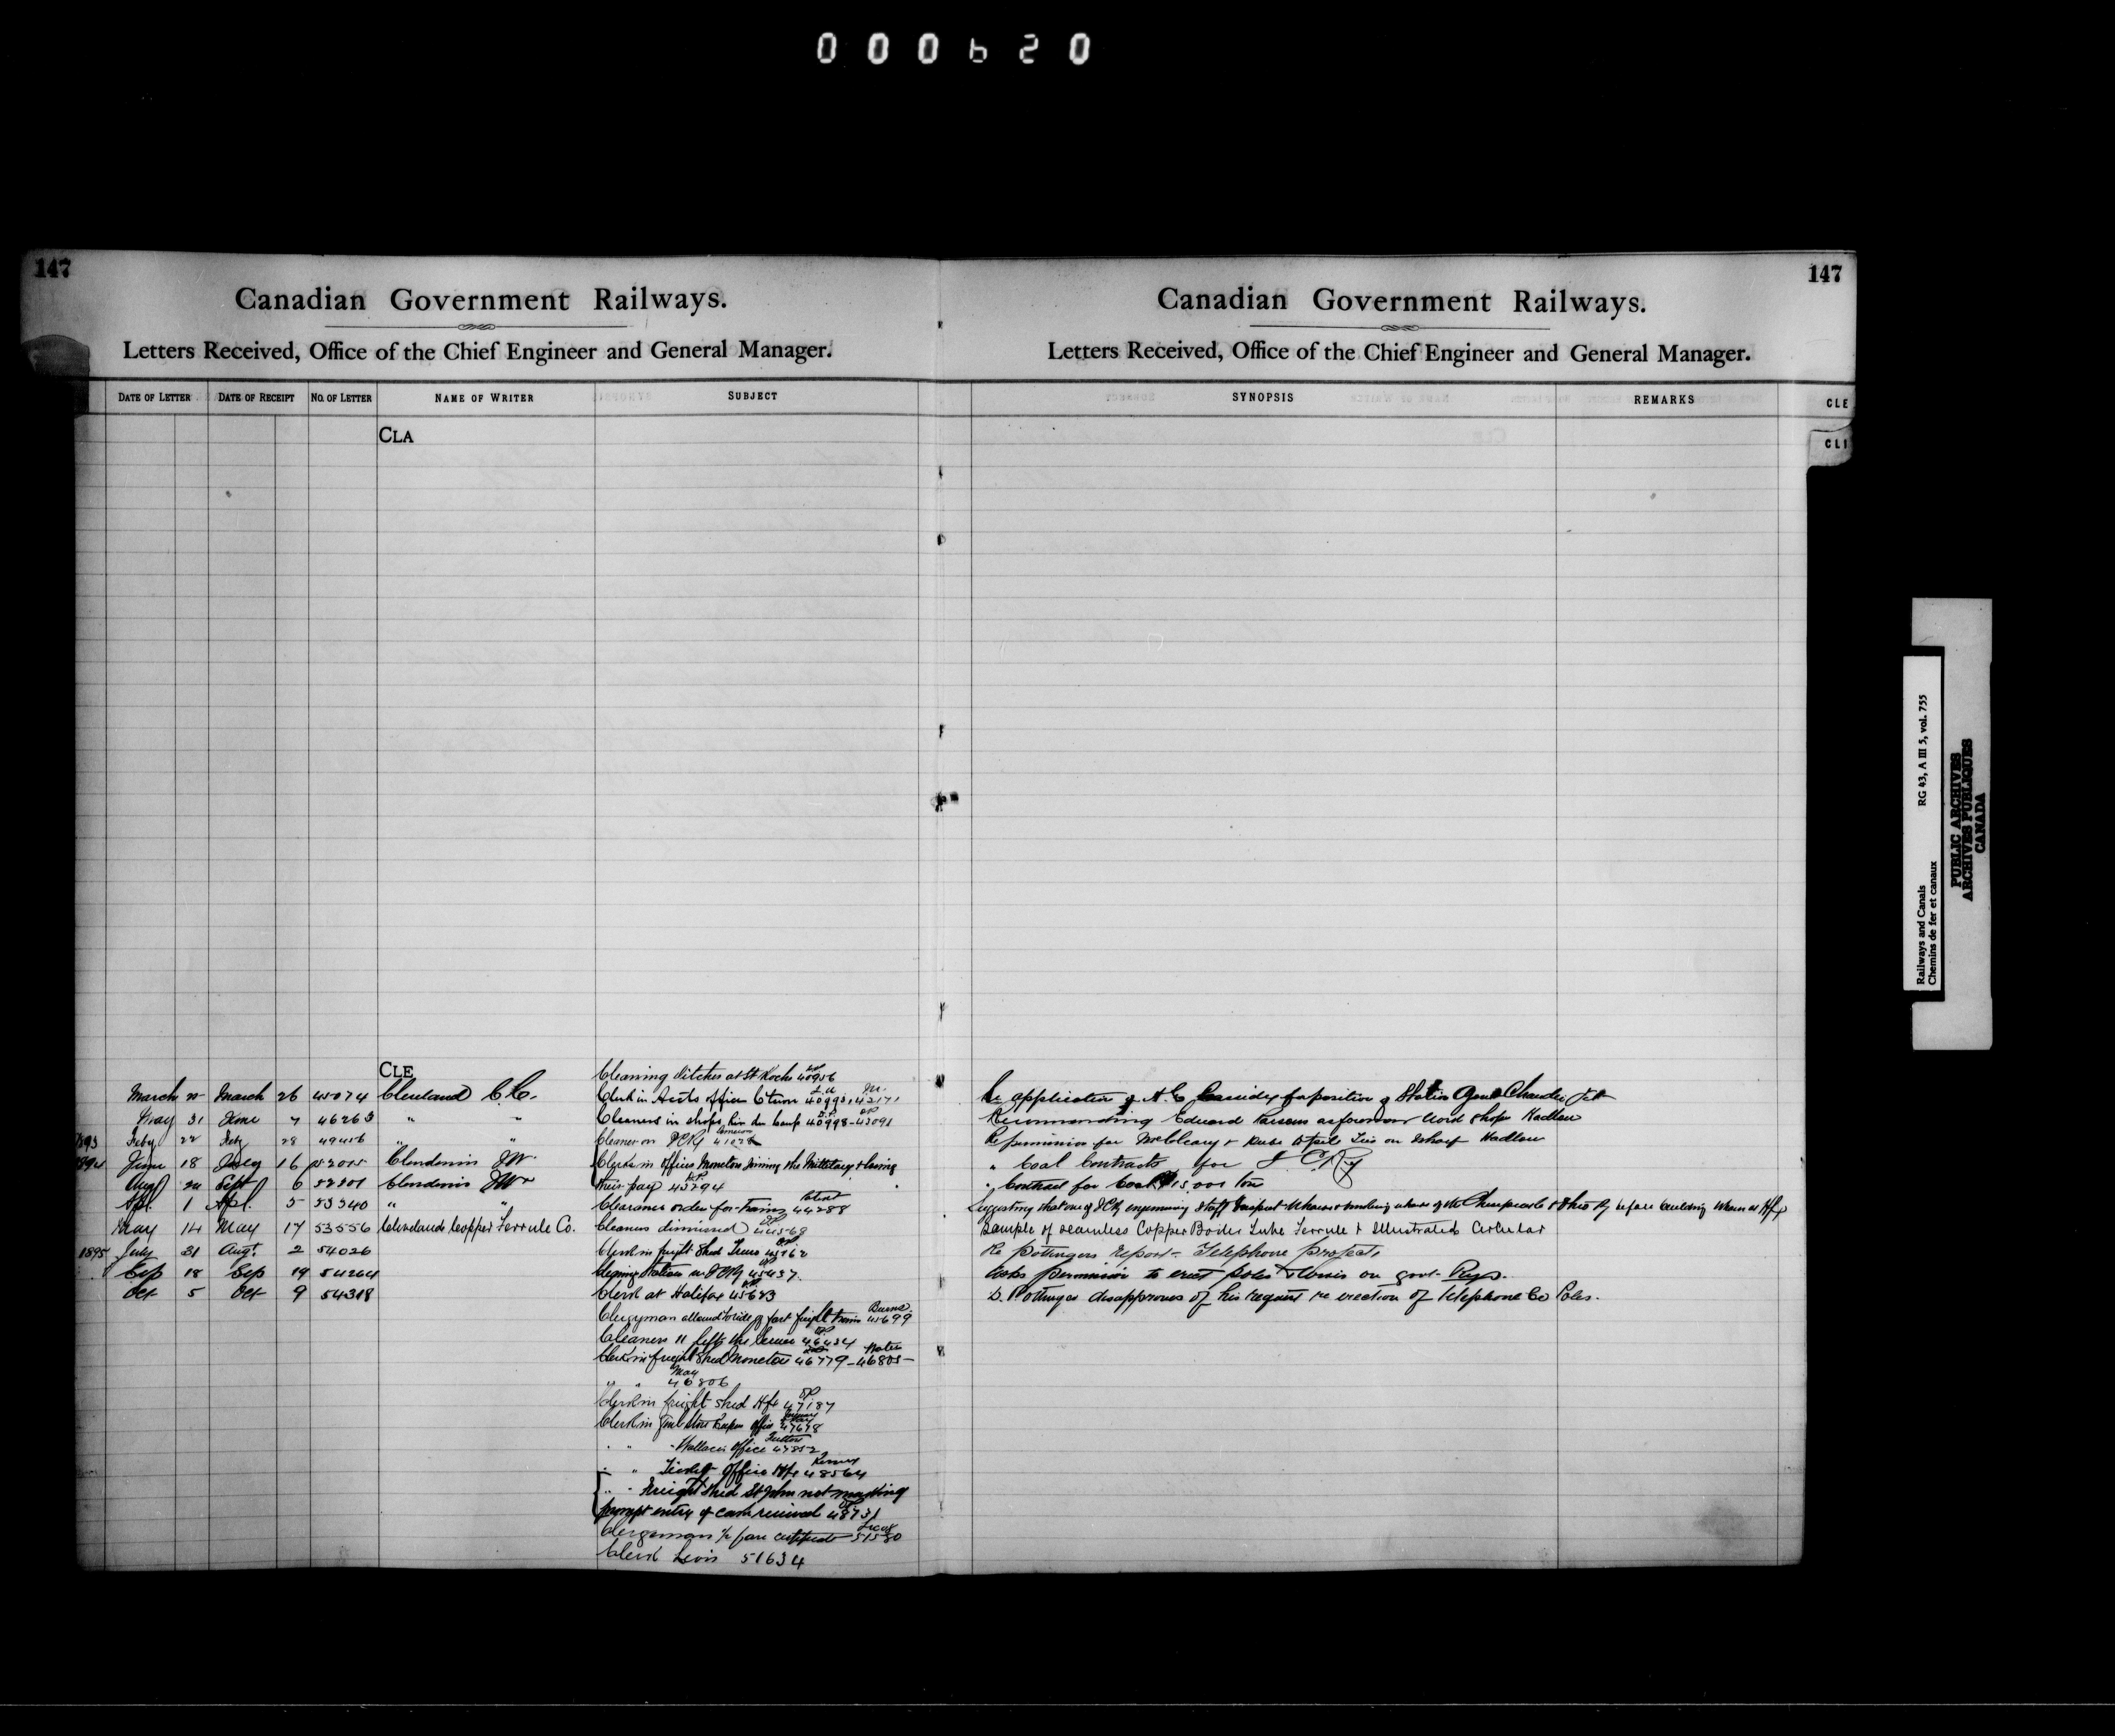 000620
147
Canadian Government Railways.
Letters Received, Office of the Chief Engineer and General Manager.
DATE OF LETTER DATE OF RECEIPT NO. OF LETTER NAME OF WRITER SUBJECT
CLA
CLE
March March 26 45074 Cleveland C.C.
May 31 June 7 46263 " "
1893 Feby 22 Feby 28 49416 " "
June 18 July 16 52015 Clendennin JW
Aug 24 Sept 6 52201 Clendennin JW
Apl. 1 Apl. 5 53340 " "
May 14 May 17 53556 Clevelands Copper Ferrule Co.
1895 July 31 Augt. 2 54026
Sep 18 Sep 19 54264
Oct 5 Oct 9 54318
Cleaning ditches at St Rochs 40956
Clerk in Accts office 40993, 43171
Cleaners in shops Riv du Loup 40998-43091
Cleaner on ICRy 41028
Clerks in offices Moncton joining the Military & losing
their pay 43794
Clearance order for trains 44288
Cleaners dismissed 44569
Clerk in freight Shed Truro 45162
Stations on ICRy 45437
Clerk at Halifax 45683
Clergyman allowed to ride on fast freight train 45699
Cleaners 11 left the 46434
Clerk in freight Shed Moncton 46779-46805-
" " 46806
Clerk in freight shed Hfx 47187
Clerk in Genl Store Keepers Office 47678
" " Wallaces Office 47852
" " Ticket Office Hfx 48564
" " Freight Shed St John not making
prompt entry of cash received 48731
Clergyman ½ fare certificate 51580
Clerk Levis 51634
147
Canadian Government Railways.
Letters Received, Office of the Chief Engineer and General Manager.
SYNOPSIS REMARKS
CLE
CLI
Re application of for position of Station Agent
Recommending Edward Parsons as foreman Hadlow
Re permission for McCleary & to on wharf Hadlow
" Coal Contracts for I.C.Ry
" Contract for Coal 15,000 tons
Suggesting that one of ICRy engineering staff inspect wharves of the Chesapeake & Ohio Ry before building wharves at Hfx
Sample of seamless Copper Boiler Tube Ferrule & Illustrated Circular
Re Pottingers report - Telephone project
Asks permission to erect poles & wires on govt. Rys.
D. Pottinger disapproves of his request re erection of Telephone Co Poles.
Railways and Canals RG 43, A III 5, vol. 755
Chemins de fer et canaux
PUBLIC ARCHIVES
ARCHIVES PUBLIQUES
CANADA